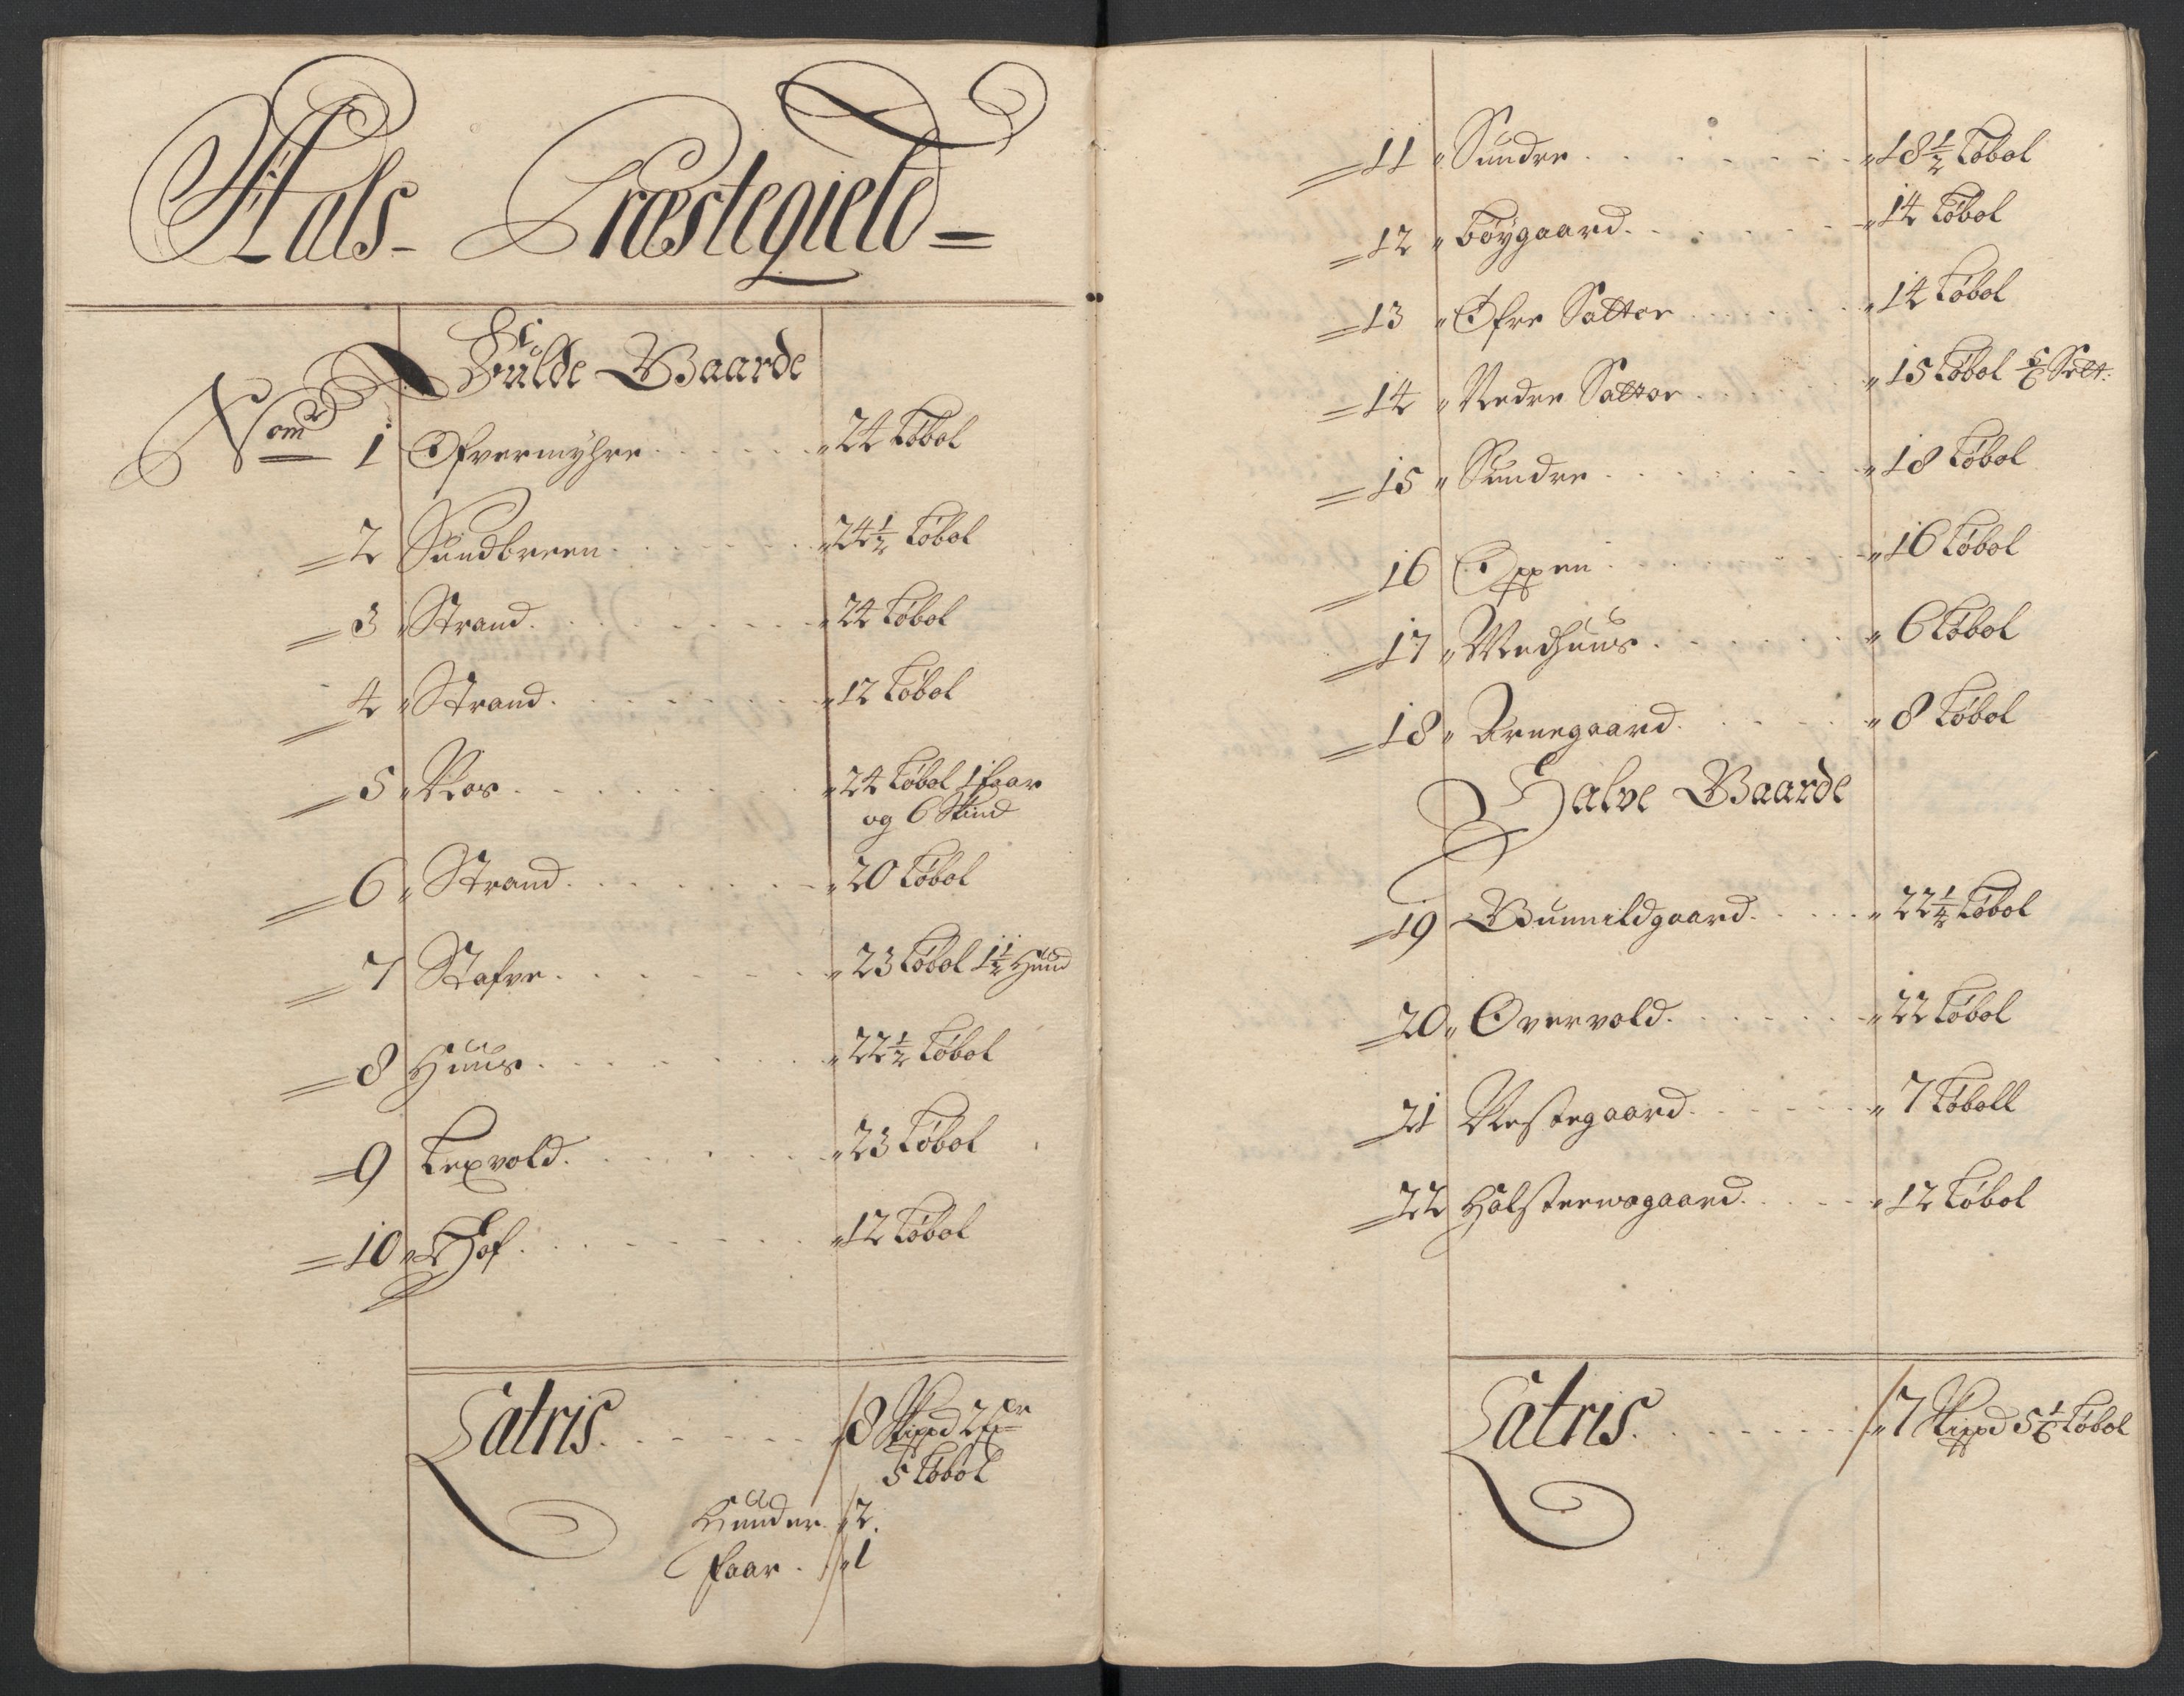 Aals- Præstegield =
Fulde Gaarde
Nom
1 Øfvermyhre . . . . . . „ 24 Løbol
2 Sundbreen . . . . . . „ 24½ Løbol
3 „ Strand . . . . . . „ 24 Løbol
4 „ Strand . . . . . . „ 12 Løbol
5 „ Noss . . . . . . „ 24 Løbol 1 faar
og 6 Skind
6 „ Strand . . . . . . „ 20 Løbol
7 Stafve . . . . . . „ 23 Løbol 1½ Hud
8 Huus . . . . . . „ 22½ Løbol
9 Lexvold . . . . . . „ 23 Løbol
10 „ Hof . . . . . . „ 12 Løbol
Latris . . . . . . „ 8 Skippd 2
5 Løbol
Huuder . „ 2.
faar . „ 1
11 „ Sundre . . . . . . „ 18½ Løbol
12 „ Bøygaard . . . . . . „ 14 Løbol
13 „ Øfre Satter . . . . . . „ 14 Løbol
14 „ Nedre Satter . . . . „ 15 Løbol
15 „ Sundre . . . . . . „ 18 Løbol
16 Oppen . . . . . . „ 16 Løbol
17 „ Medhuus . . . . . . „ 6 Løbol
18 „ Arnegaard . . . . . „ 8 Løbol
Halve Gaarde
19 Gunnildgaard . . . . „ 22¼ Løbol
20 „ Overvold . . . . . . „ 22 Løbol
21 Nestegaard . . . . . „ 7 Løboll
22 Holstensgaard . . . . „ 12 Løbol
Latris . . . . . . „ 7 Skippd 5⅙ Løbol